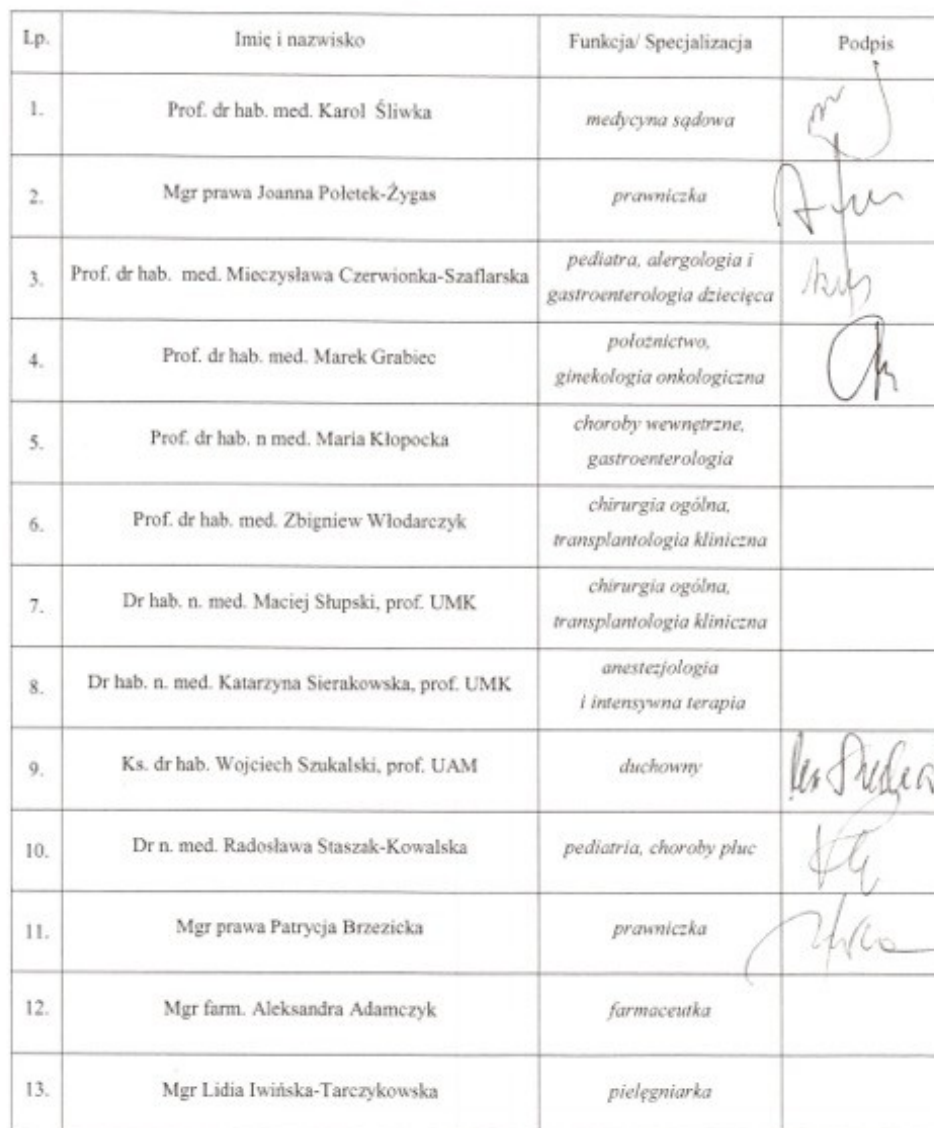 Lp. Imię i nazwisko Funkcja/ Specjalizacja Podpis
1. Prof. dr hab. med. Karol Śliwka medycyna sądowa
2. Mgr prawa Joanna Połetek-Żygas prawniczka
3. Prof. dr hab. med. Mieczysława Czerwionka-Szaflarska pediatra, alergologia i
gastroenterologia dziecięca
4. Prof. dr hab. med. Marek Grabiec położnictwo,
ginekologia onkologiczna
5. Prof. dr hab. n med. Maria Kłopocka choroby wewnętrzne,
gastroenterologia
6. Prof. dr hab. med. Zbigniew Włodarczyk chirurgia ogólna,
transplantologia kliniczna
7. Dr hab. n. med. Maciej Słupski, prof. UMK chirurgia ogólna,
transplantologia kliniczna
8. Dr hab. n. med. Katarzyna Sierakowska, prof. UMK anestezjologia
i intensywna terapia
9. Ks. dr hab. Wojciech Szukalski, prof. UAM duchowny
10. Dr n. med. Radosława Staszak-Kowalska pediatria, choroby płuc
11. Mgr prawa Patrycja Brzezicka prawniczka
12. Mgr farm. Aleksandra Adamczyk farmaceutka
13. Mgr Lidia Iwińska-Tarczykowska pielęgniarka